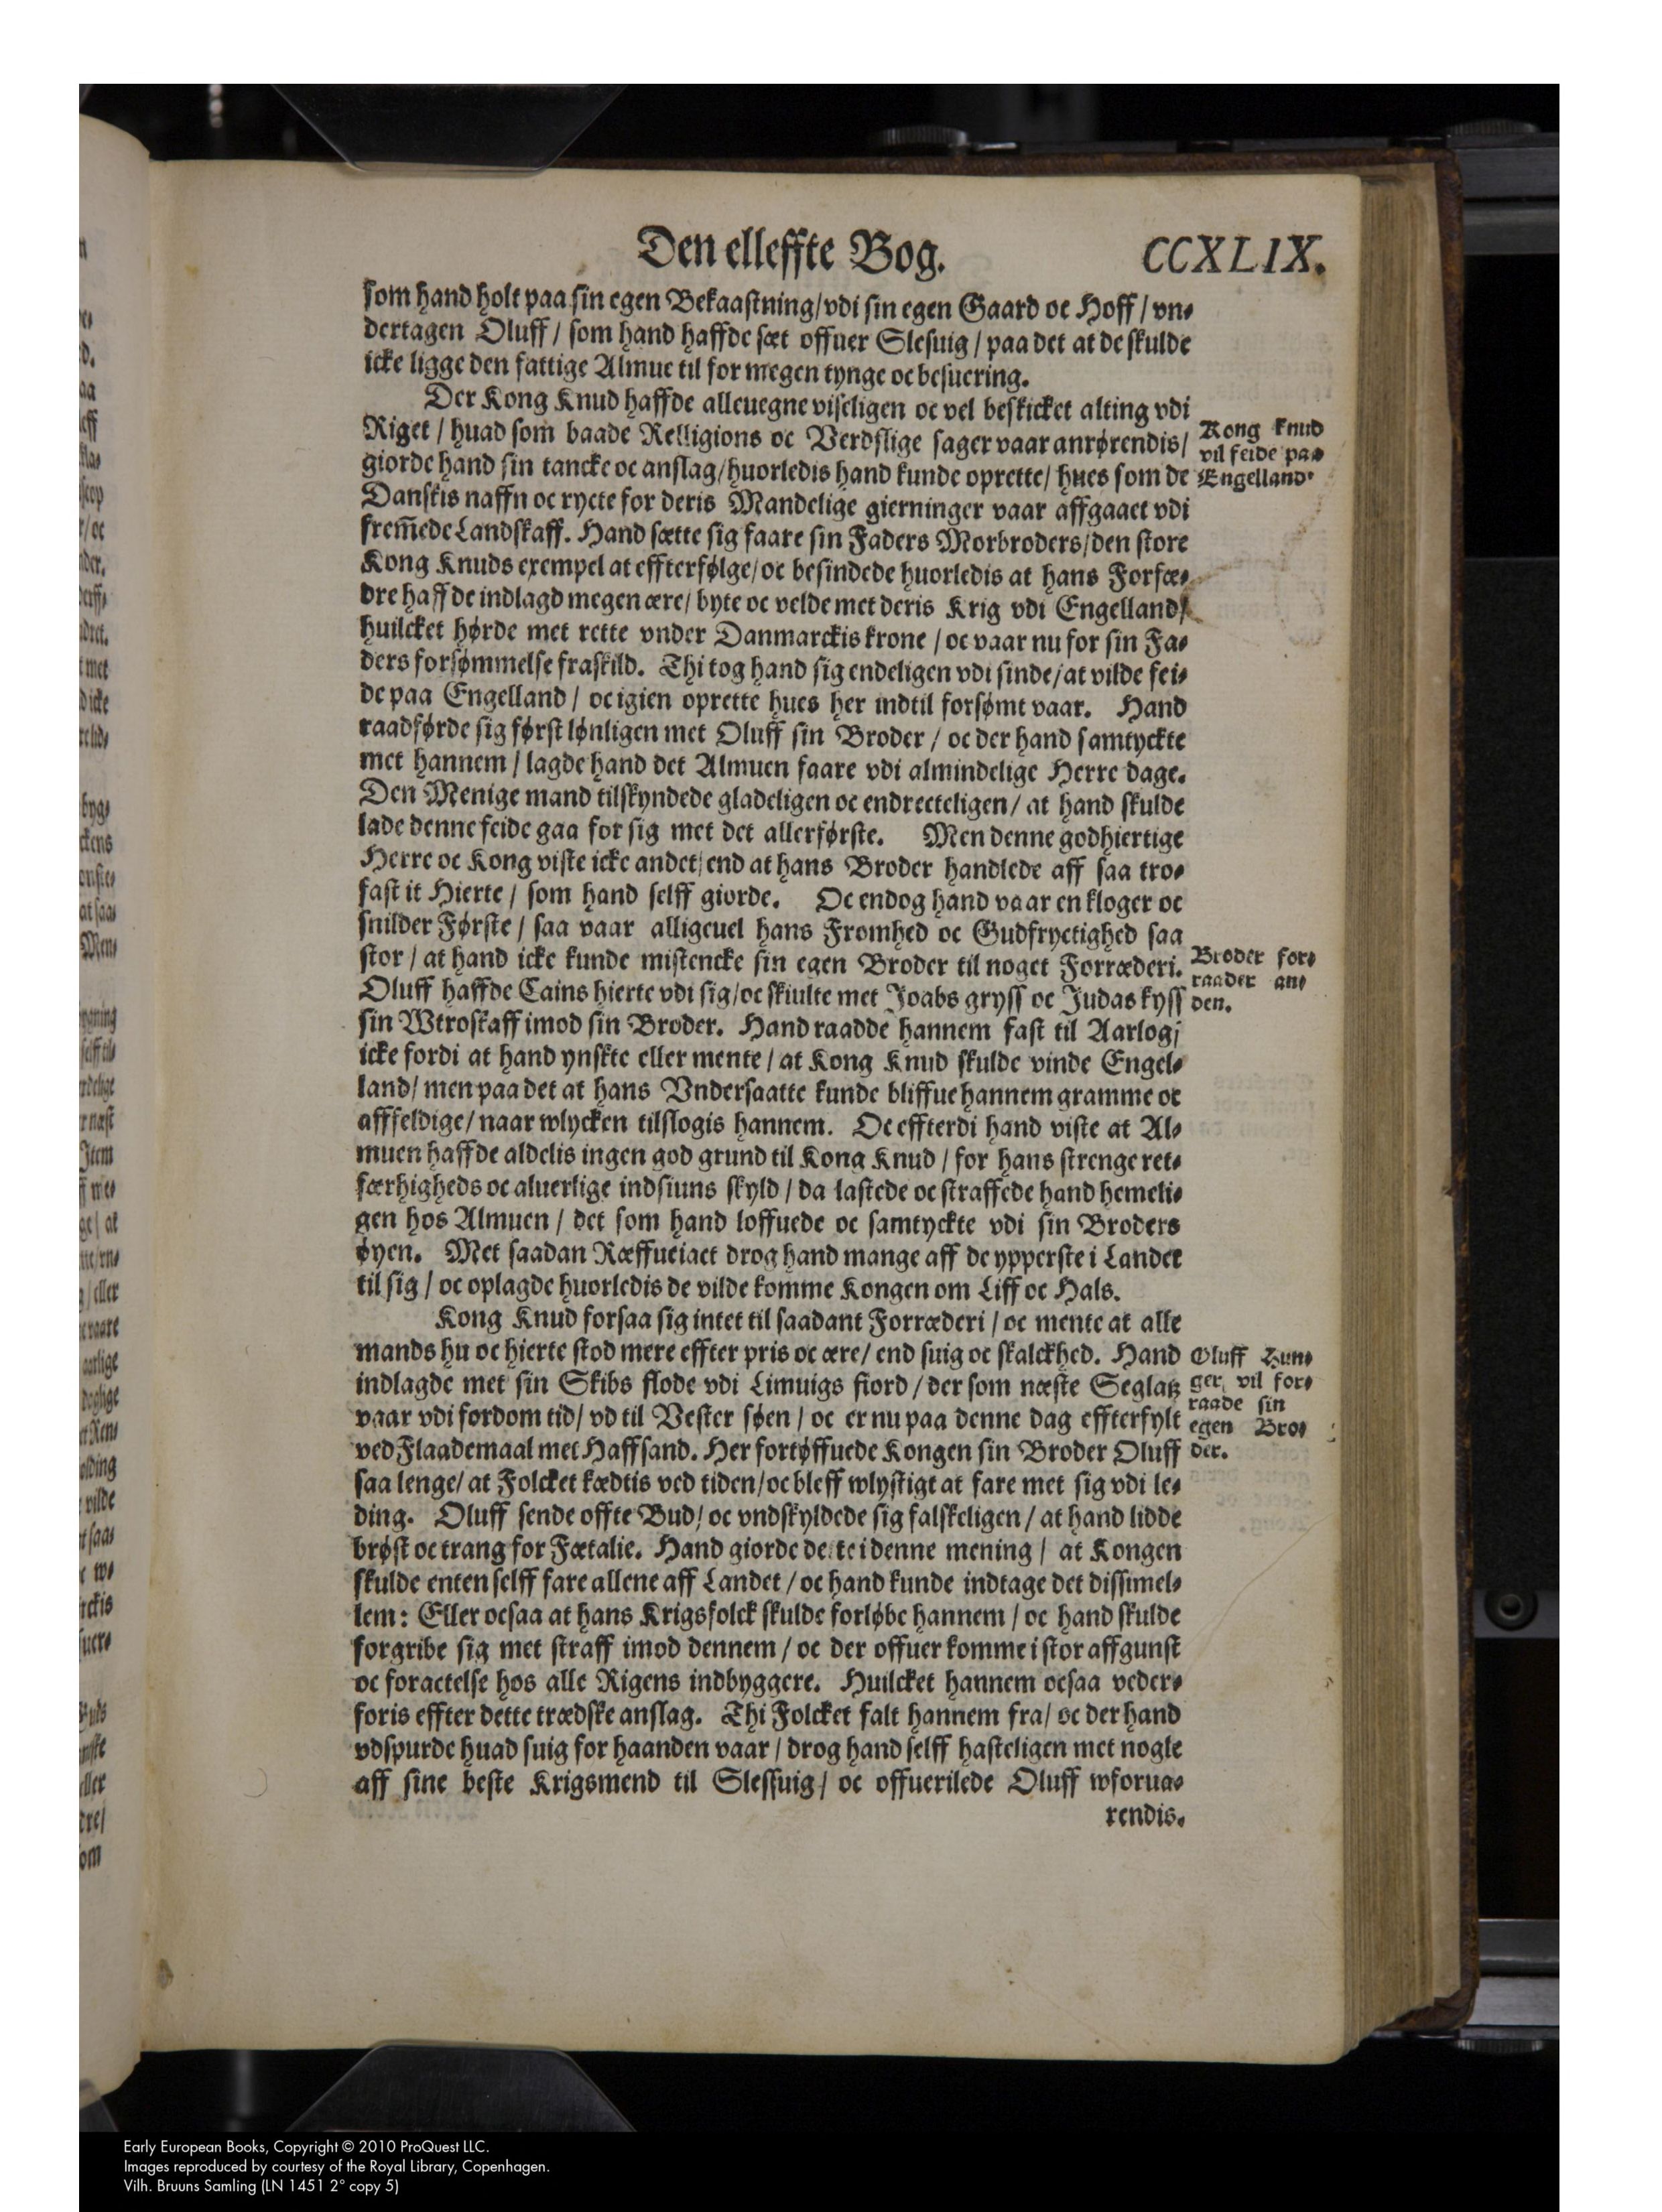 Den elleffte Bog. CCXLIX.
som hand holt paa sin egen Bekaastning/vdi sin egen Gaard oc Hoff/ vn⸗
dertagen Oluff/ som hand haffde sæt offuer Slesuig/ paa det at de skulde
icke ligge den fattige Almue til for megen tynge oc besuering.
Der Kong Knud haffde alleuegne viseligen oc vel beskicket alting vdi
Riget/ huad som baade Relligions oc Verdslige sager vaar anrørendis/
giorde hand sin tancke oc anslag/huorledis hand kunde oprette/ hues som de
Danskis naffn oc rycte for deris Mandelige gierninger vaar affgaaet vdi
frem̅ede Landskaff. Hand sætte sig faare sin Faders Morbroders/den store
Kong Knuds exempel at effterfølge/oc besindede huorledis at hans Forfæ⸗
dre haffde indlagd megen ære/ byte oc velde met deris Krig vdi Engelland/
huilcket hørde met rette vnder Danmarckis krone/ oc vaar nu for sin Fa⸗
ders forsømmelse fraskild. Thi tog hand sig endeligen vdi sinde/at vilde fei⸗
de paa Engelland/ oc igien oprette hues her indtil forsømt vaar. Hand
raadførde sig først lønligen met Oluff sin Broder/ oc der hand samtyckte
met hannem/ lagde hand det Almuen faare vdi almindelige Herre dage.
Den Menige mand tilskyndede gladeligen oc endrecteligen/ at hand skulde
lade denne feide gaa for sig met det allerførste. Men denne godhiertige
Herre oc Kong viste icke andet/ end at hans Broder handlede aff saa tro⸗
fast it Hierte/ som hand selff giorde. Oc endog hand vaar en kloger oc
snilder Første/ saa vaar alligeuel hans Fromhed oc Gudfryctighed saa
stor/ at hand icke kunde mistencke sin egen Broder til noget Forræderi.
Oluff haffde Cains hierte vdi sig/oc skiulte met Joabs gryss oc Judas kyss
sin Wtroskaff imod sin Broder. Hand raadde hannem fast til Aarlog/
icke fordi at hand ynskte eller mente/ at Kong Knud skulde vinde Engel⸗
land/ men paa det at hans Vndersaatte kunde bliffue hannem gramme oc
afffeldige/ naar wlycken tilslogis hannem. Oc effterdi hand viste at Al⸗
muen haffde aldelis ingen god grund til Kong Knud/ for hans strenge ret⸗
færhigheds oc aluerlige indsiuns skyld/ da lastede oc straffede hand hemeli⸗
gen hos Almuen/ det som hand loffuede oc samtyckte vdi sin Broders
øyen. Met saadan Ræffueiact drog hand mange aff de ypperste i Landet
til sig/ oc oplagde huorledis de vilde komme Kongen om Liff oc Hals.
Kong Knud forsaa sig intet til saadant Forræderi/ oc mente at alle
mands hu oc hierte stod mere effter pris oc ære/ end suig oc skalckhed. Hand
indlagde met sin Skibs flode vdi Limuigs fiord/ der som næste Seglatz
vaar vdi fordom tid/ vd til Vester søen/ oc er nu paa denne dag effterfylt
ved Flaademaal met Haffsand. Her fortøffuede Kongen sin Broder Oluff
saa lenge/ at Folcket kædtis ved tiden/oc bleff wlystigt at fare met sig vdi le⸗
ding. Oluff sende offte Bud/ oc vndskyldede sig falskeligen/ at hand lidde
brøst oc trang for Fætalie. Hand giorde dette i denne mening/ at Kongen
skulde enten selff fare allene aff Landet/ oc hand kunde indtage det dissimel⸗
lem: Eller ocsaa at hans Krigsfolck skulde forløbe hannem/ oc hand skulde
forgribe sig met straff imod dennem/ oc der offuer komme i stor affgunst
oc foractelse hos alle Rigens indbyggere. Huilcket hannem ocsaa veder⸗
foris effter dette trædske anslag. Thi Folcket falt hannem fra/ oc der hand
vdspurde huad suig for haanden vaar/ drog hand selff hasteligen met nogle
aff sine beste Krigsmend til Slessuig/ oc offuerilede Oluff wforua⸗
rendis.
Kong Knud
vil feide paa
Engelland.
Broder for⸗
raader an⸗
den.
Oluff Hun⸗
ger, vil for⸗
raade sin
egen Bro⸗
der.
Early European Books, Copyright © 2010 ProQuest LLC.
Images reproduced by courtesy of the Royal Library, Copenhagen.
Vilh. Bruuns Samling (LN 1451 2° copy 5)